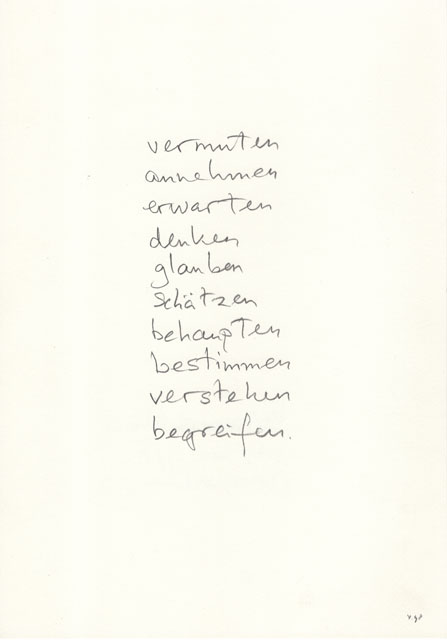 vermuten
annehmen
erwarten
denken
glauben
schätzen
behaupten
bestimmen
verstehen
begreifen.